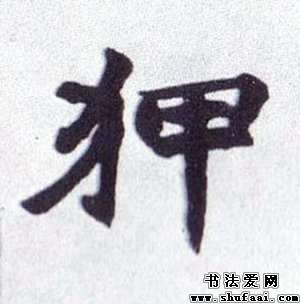 狎
书法爱网
www.shufaai.com